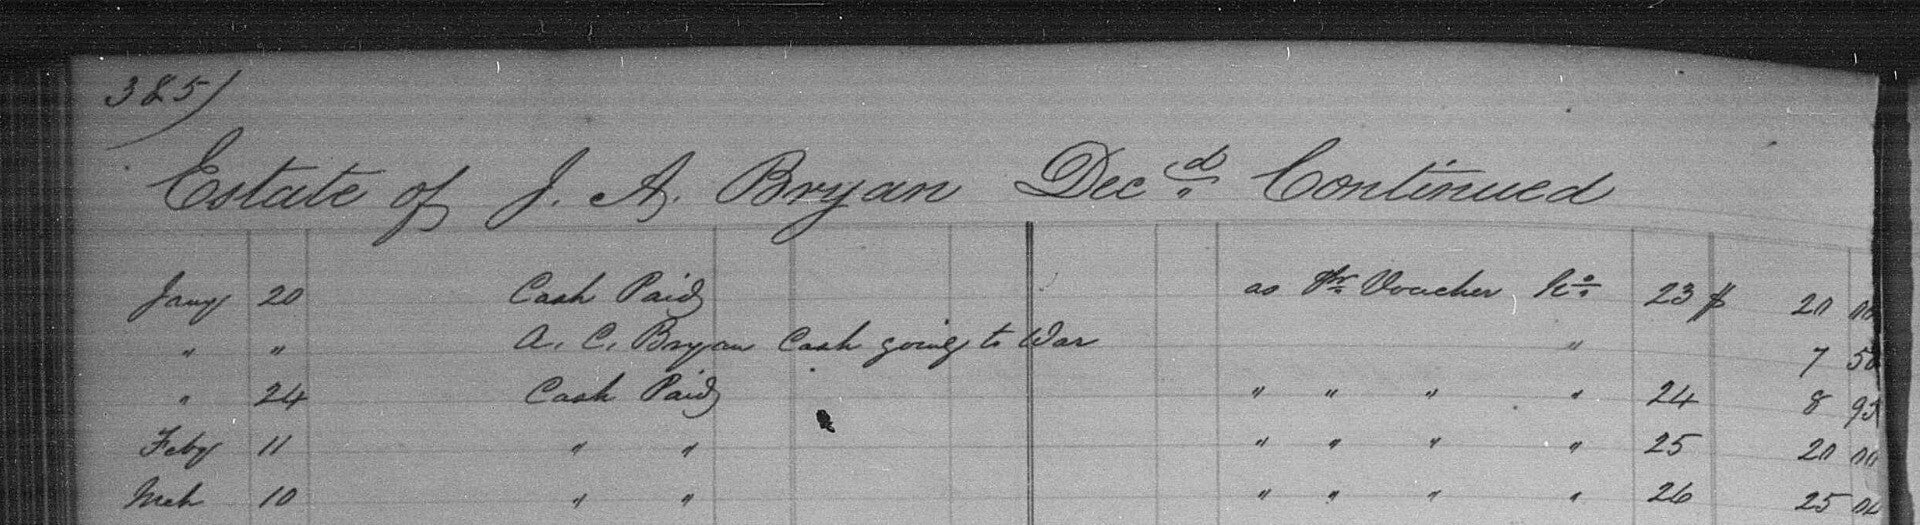 385)
Estate of J. A. Bryan Decd Continued
Jany 20 Cash Paid as Pr Voucher No 23 $ 20 00
" " A. C. Bryan Cash going to War " 7 50
" 24 Cash Paid " " " " 24 8 95
Feby 11 " " " " " " 25 20 00
Mch 10 " " " " " " 26 25 00